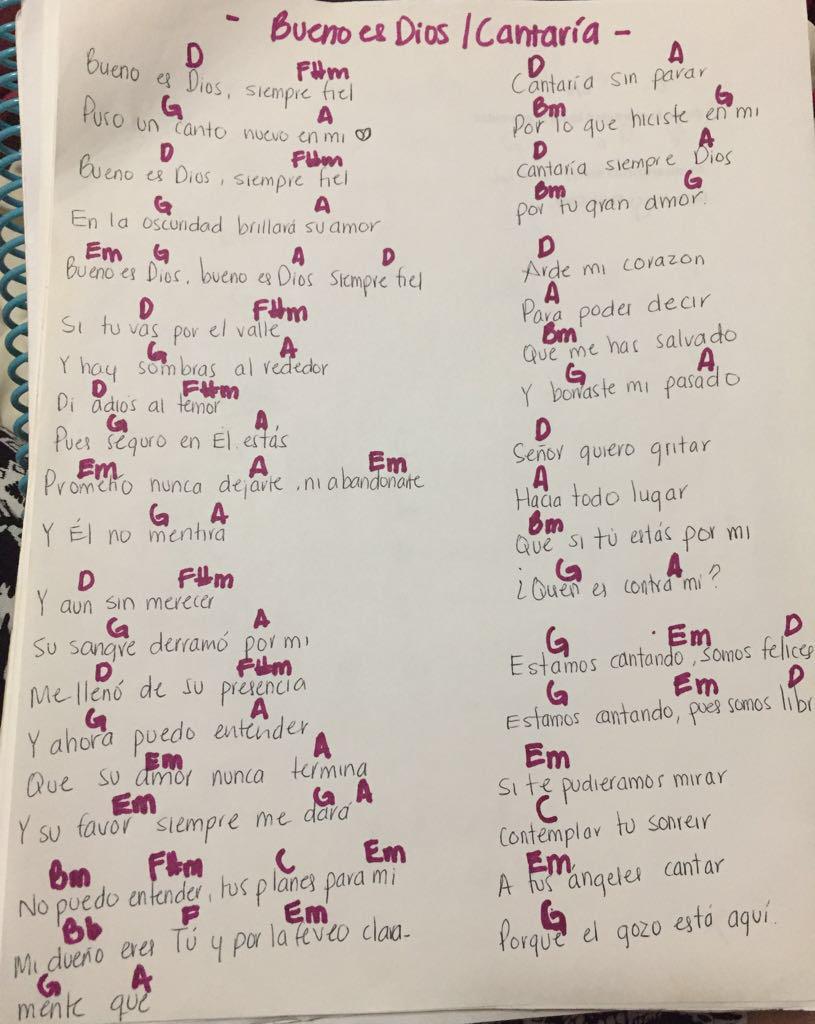 - Bueno es Dios / Cantaría -
D F#m
Bueno es Dios, siempre fiel
G A
Puso un canto nuevo en mi ♡
D F#m
Bueno es Dios, siempre fiel
G A
En la oscuridad brillará su amor
Em G A D
Bueno es Dios, bueno es Dios siempre fiel
D F#m
Si tu vas por el valle
G A
Y hay sombras al rededor
D F#m
Di adios al temor
G A
Pues seguro en Él estás
Em A Em
Prometio nunca dejarte, ni abandonarte
G A
Y Él no mentirá
D F#m
Y aun sin merecer
G A
Su sangre derramó por mi
D F#m
Me llenó de su presencia
G A
Y ahora puedo entender
Em A
Que su amor nunca termina
Em G A
Y su favor siempre me dará
Bm F#m C Em
No puedo entender, tus planes para mi
Bb F Em
Mi dueño eres Tú y por la fe veo clara-
G A
mente que
D A
Cantaría sin parar
Bm G
Por lo que hiciste en mi
D A
Cantaría siempre Dios
Bm G
por tu gran amor.
D
Arde mi corazon
A
Para poder decir
Bm
Que me has salvado
G A
Y borraste mi pasado
D
Señor quiero gritar
A
Hacia todo lugar
Bm
Que si tú estás por mi
G A
¿Quén es contra mi?
G Em D
Estamos cantando, somos felices
G Em D
Estamos cantando, pues somos libr
Em
Si te pudieramos mirar
C
Contemplar tu sonreir
Em
A tus ángeles cantar
G
Porque el gozo está aquí.